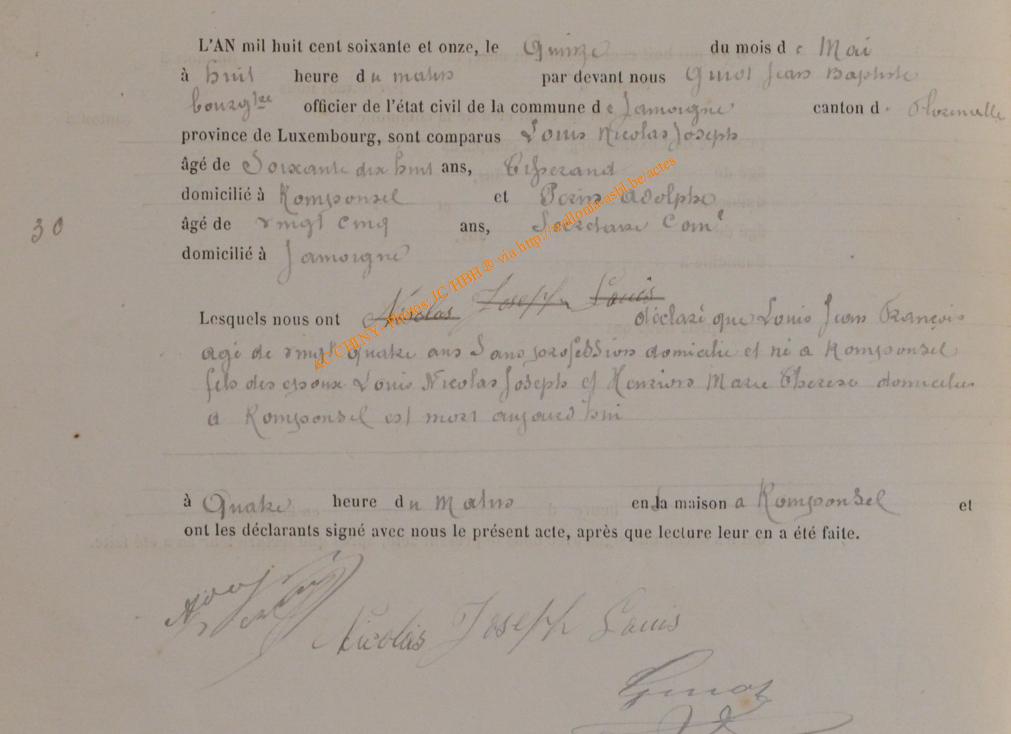 L'AN mil huit cent soixante et onze, le Quinze du mois de Mai
à huit heure du matin par devant nous Guiot Jean Baptiste
bourgtre officier de l'état civil de la commune de Jamoigne canton d. Florenville
province de Luxembourg, sont comparus Louis Nicolas Joseph
âgé de Soixante dix huit ans, Tisserand
domicilié à Romponsel et Perin Adolphe
âgé de vingt cinq ans, Secretaire Coml
30
domicilié à Jamoigne
Nicolas Joseph Louis
Lesquels nous ont déclaré que Louis Jean François
agé de vingt quatre ans Sans profession domicilie et né a Romponsel
fils des epoux Louis Nicolas Joseph et Henrion Marie Therese domicilies
a Romponsel est mort aujourd'hui
à Quatre heure du Matin en la maison a Romponsel et
ont les déclarants signé avec nous le présent acte, après que lecture leur en a été faite.
Nicolas Joseph Louis
Guiot
© CHINY - Photos JC/HBH @ via http://sellonia-asbl.be/actes